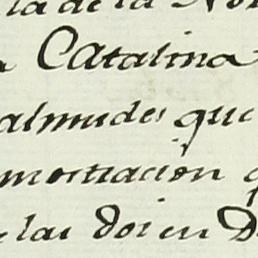 la de la No
Catalina
almudes que
mortiacion
las doi en D